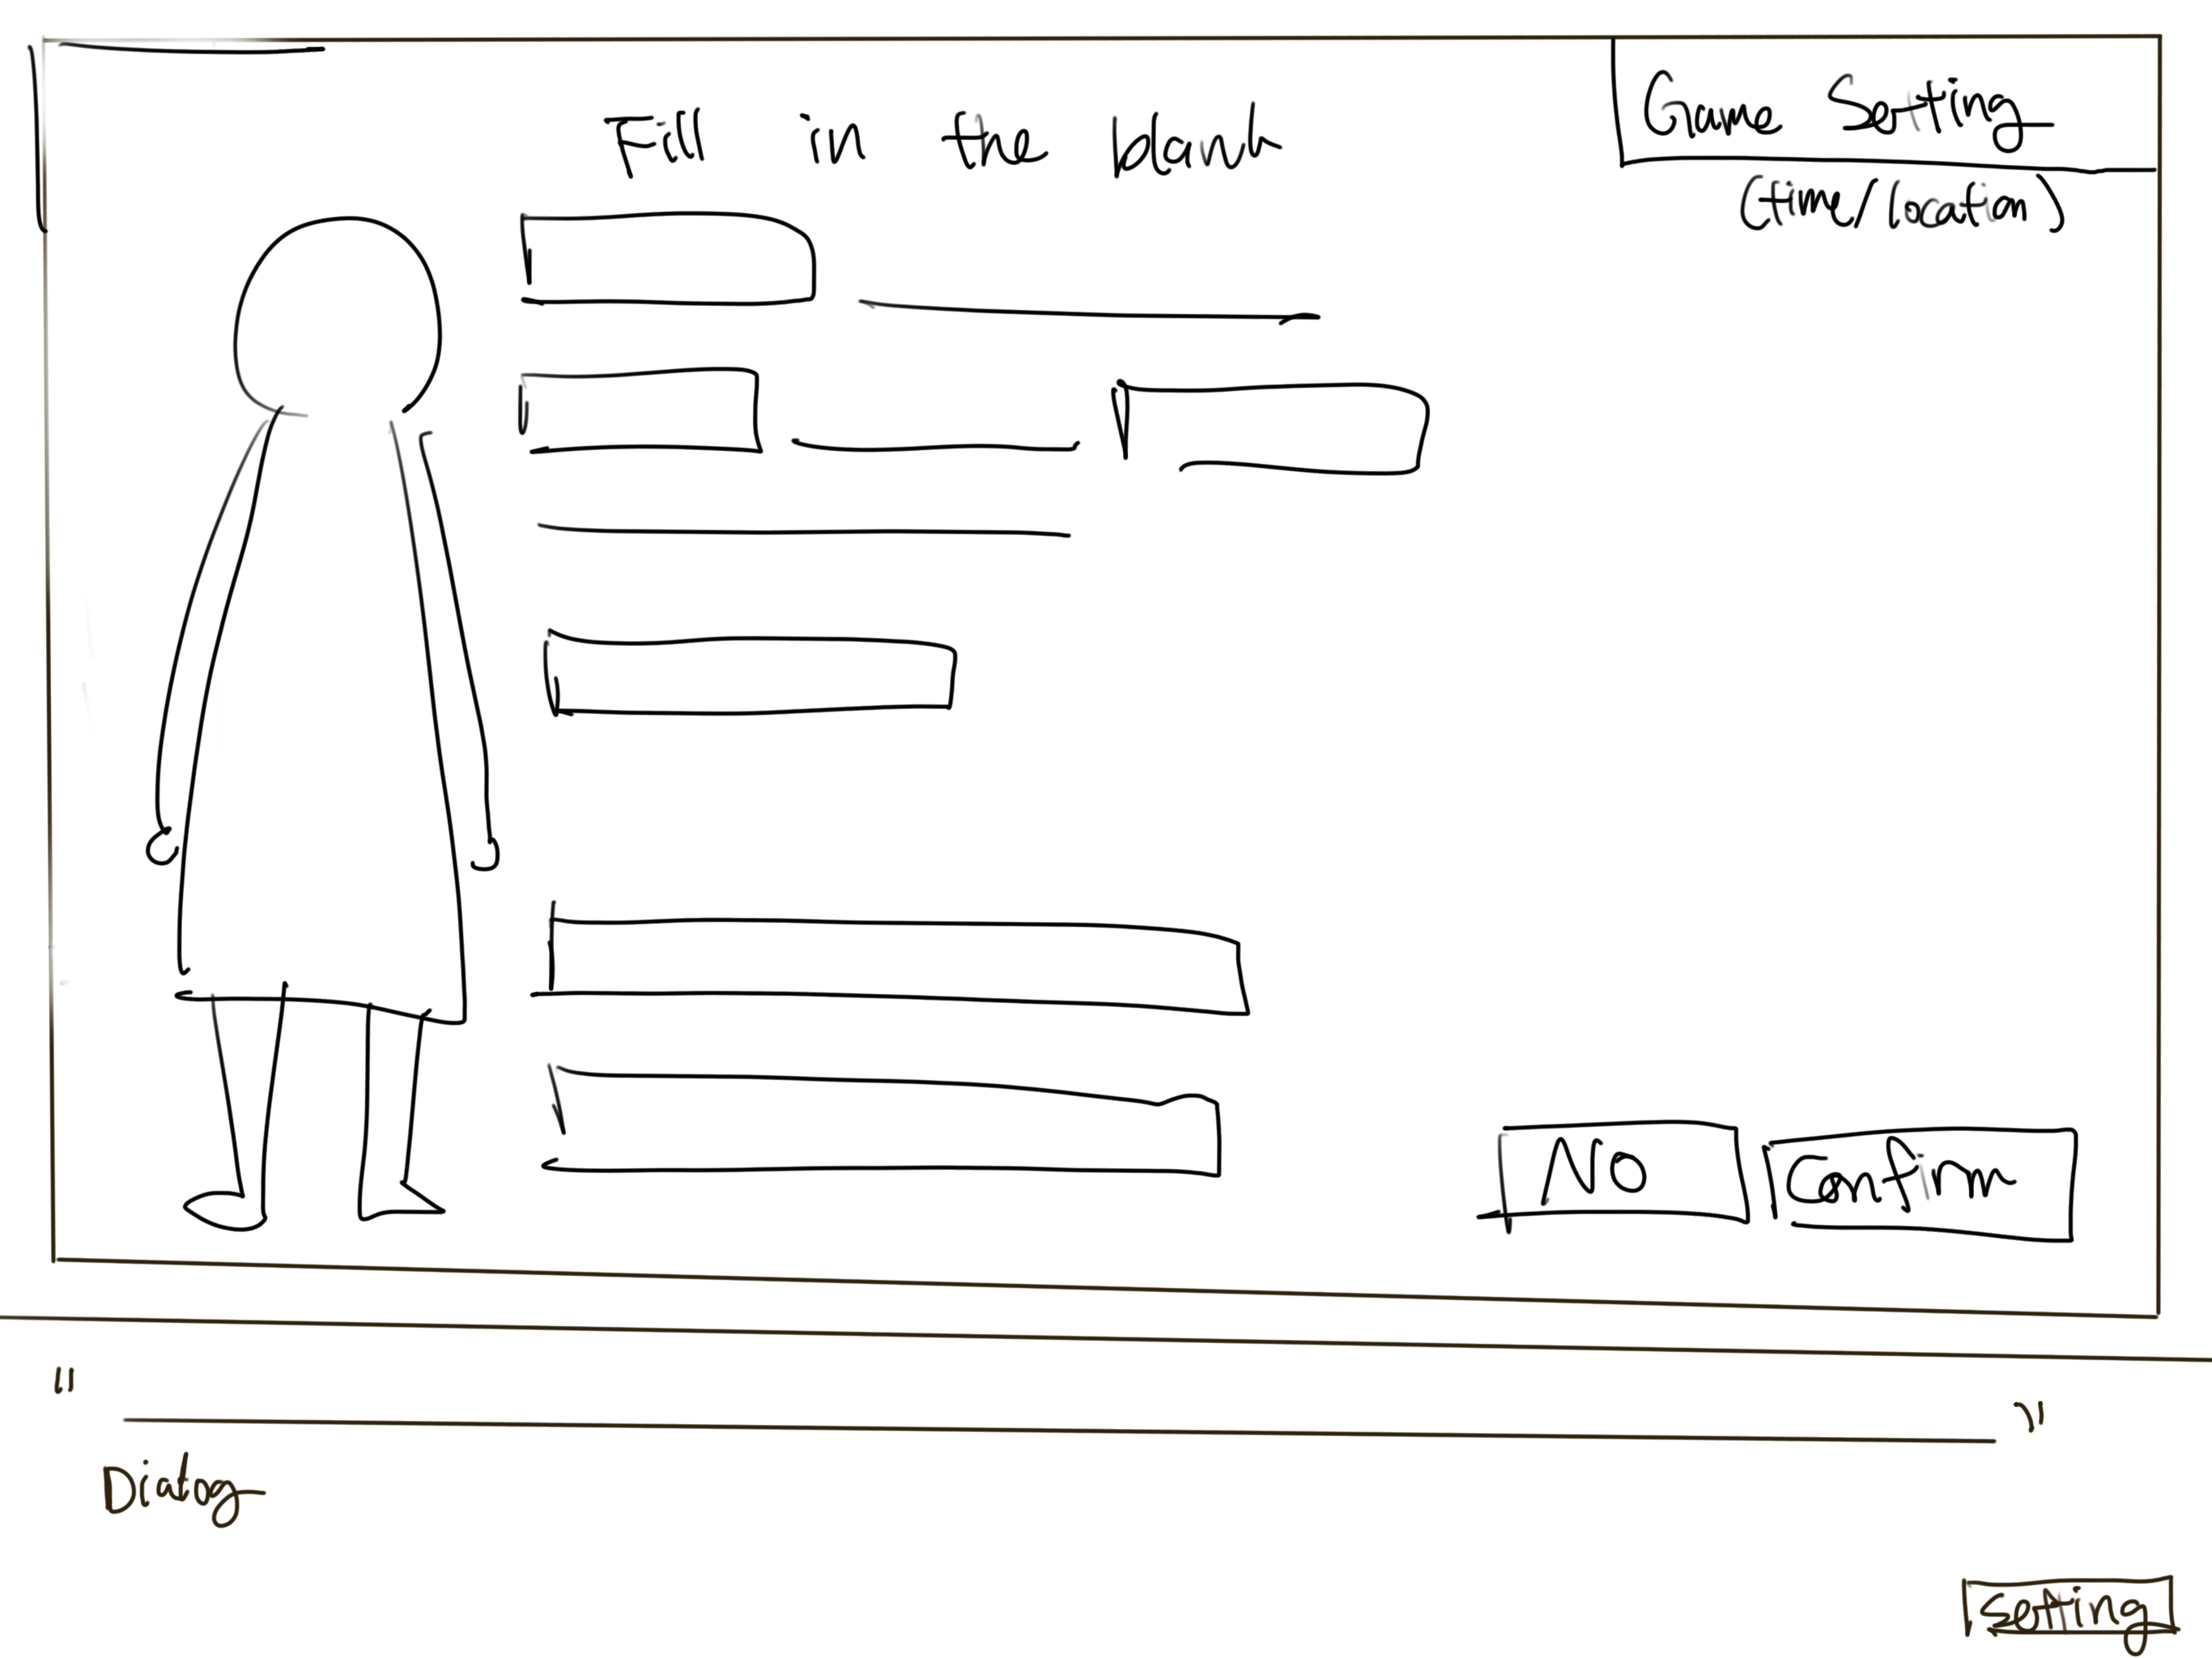 Fill in the blank
Game Setting
(time/location)
NO
Confirm
" "
Dialog
setting